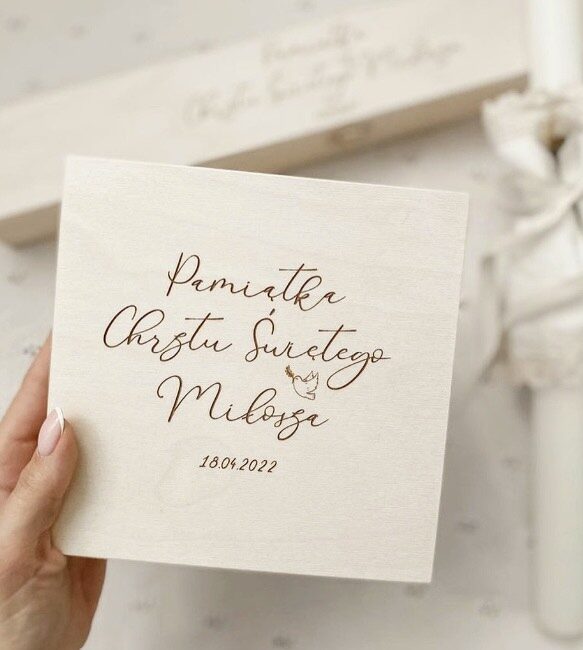 Pamiątka
Chrztu Świętego
Pamiątka
Chrztu Świętego
Miłosza
18.04.2022